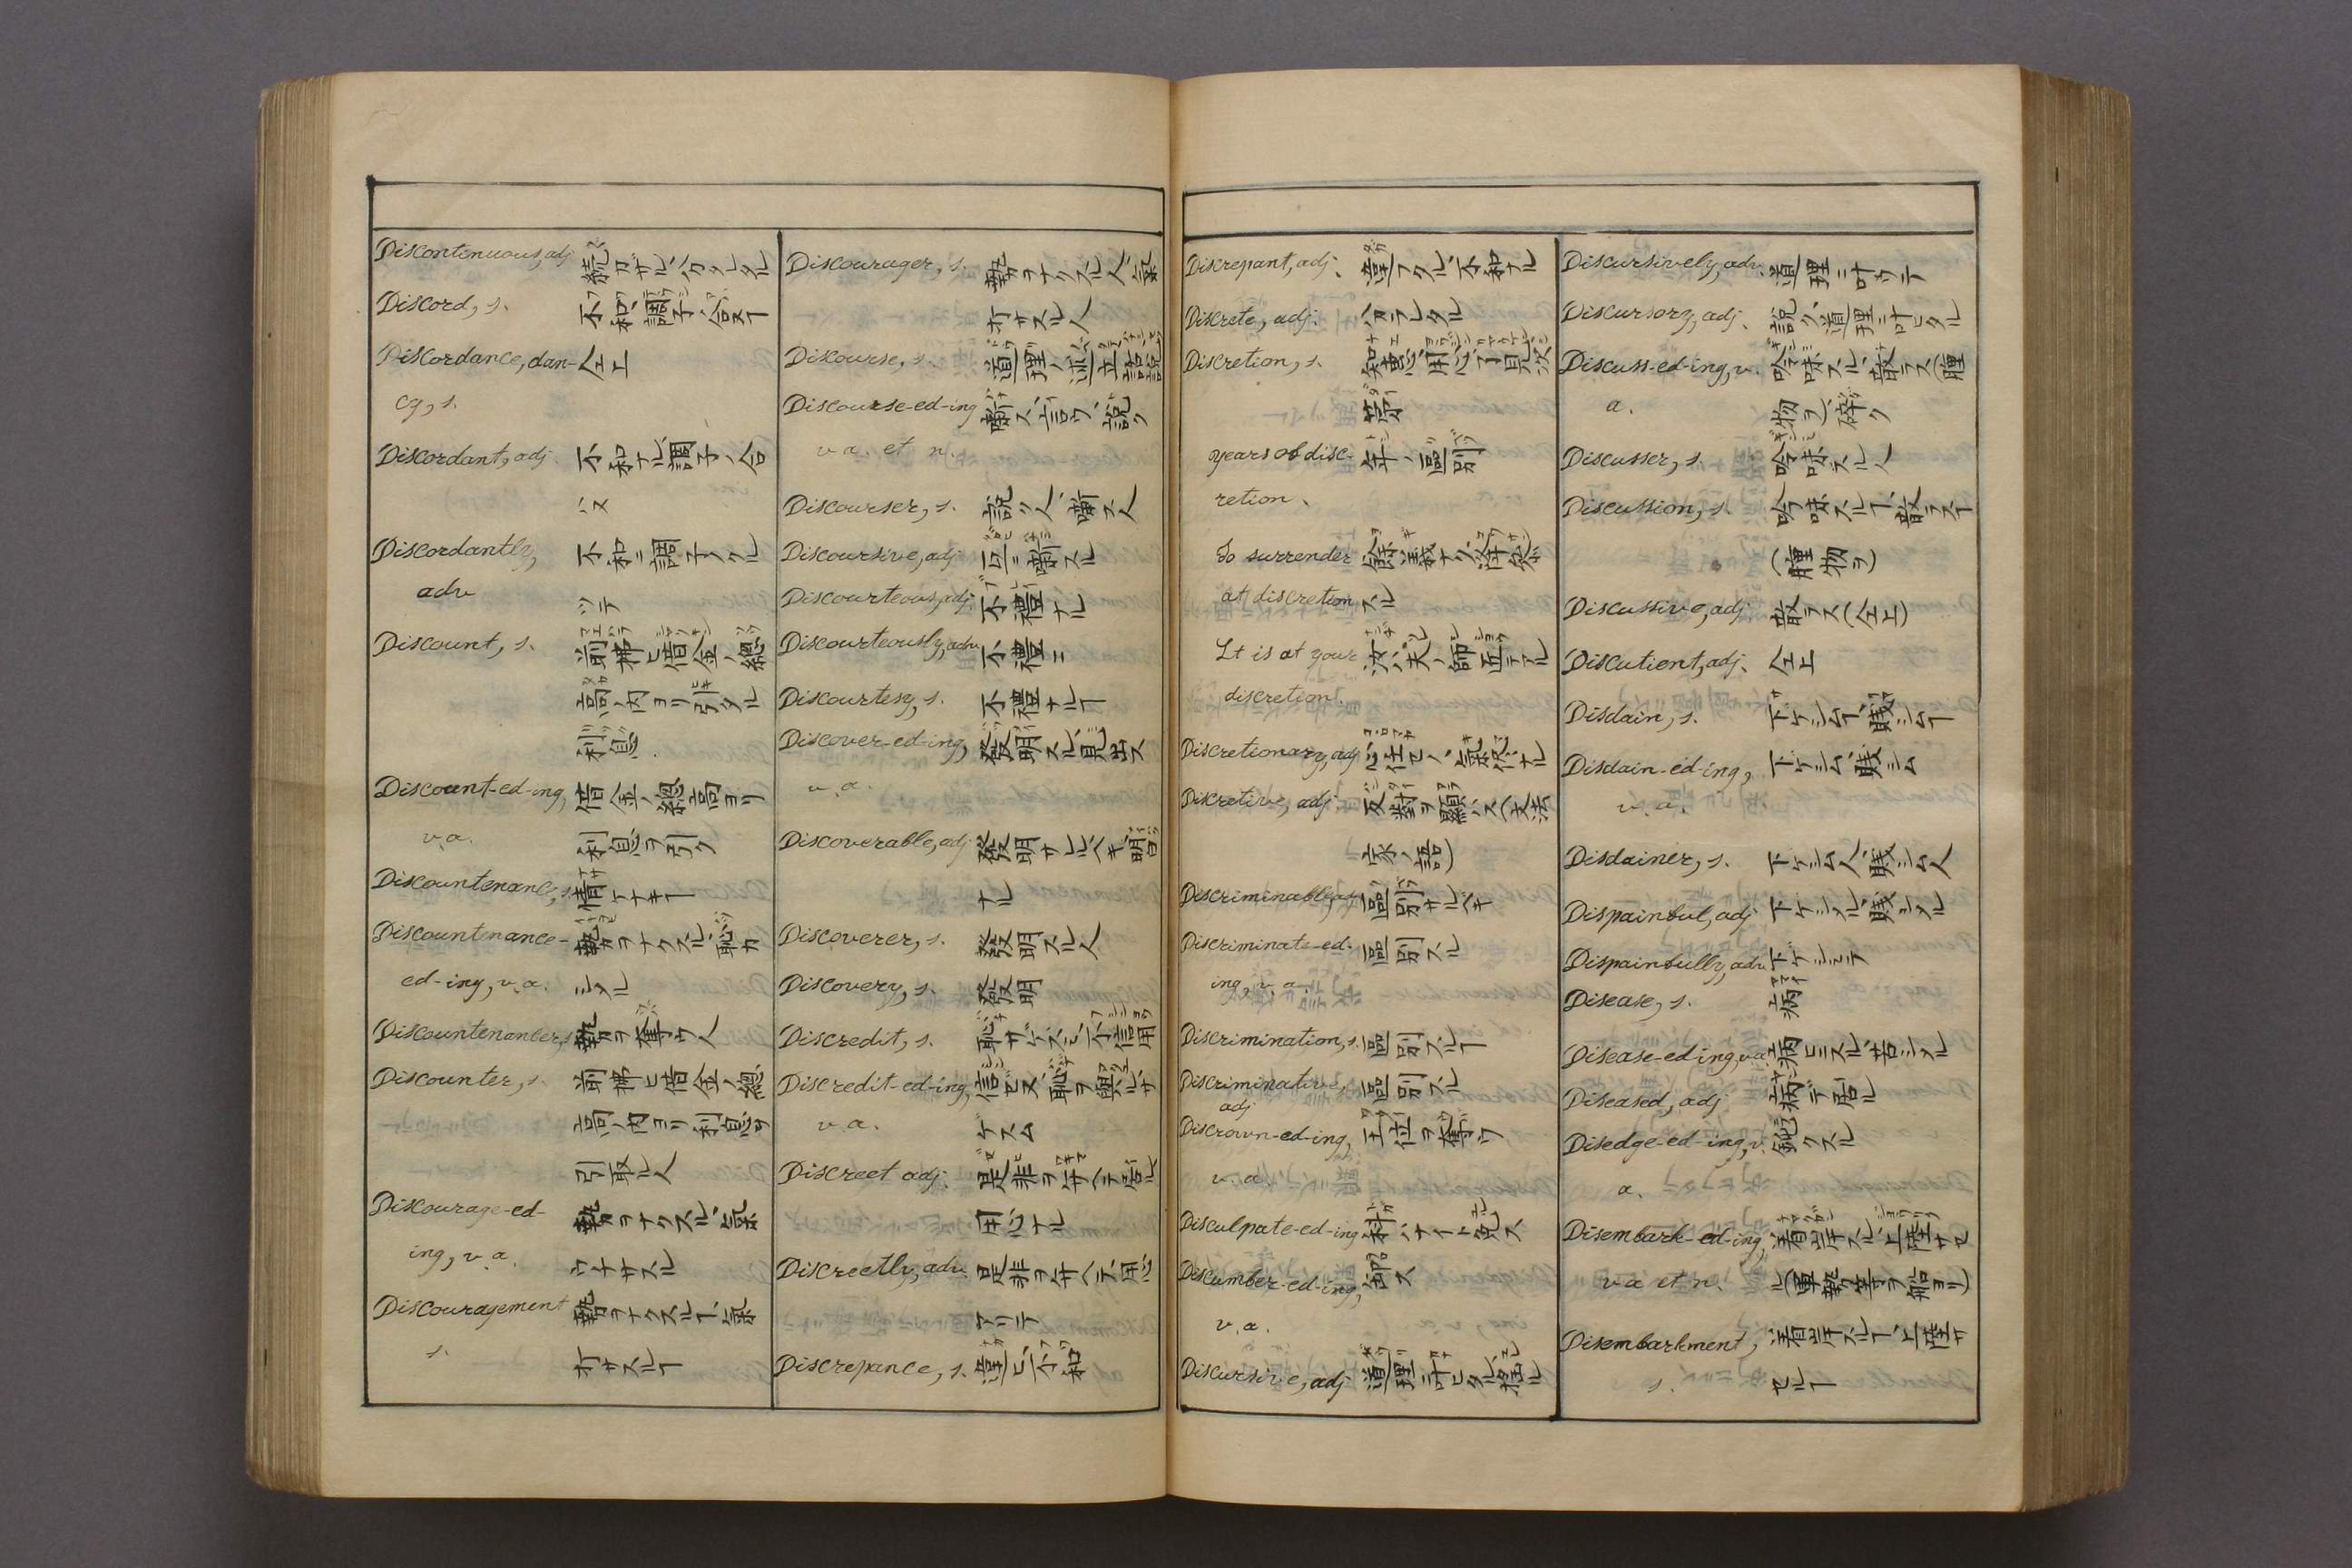 Discontinuous, adj 続カザル、分タレタル
Discord, s. 不和、調子ノ合ヌヿ
Discordance, dan- 仝上
cy, s.
Discordant, adj 不和ナル、調子ノ合
ハヌ
Discordantly, 不和ニ、調子ノクル
adv ツテ
Discount, s. 前拂ヒ借金ノ總
高ノ内ヨリ引タル
利息.
Discount-ed-ing, 借金ノ總高ヨリ
v.a. 利息ヲ引ク
Discountenance, s. 情ケナキヿ
Discountenance- 勢ヲナクスル、恥カ
ed-ing, v.a. シメル
Discountenancer, s. 勢ヲ奪ウ人
Discounter, s. 前拂ヒ借金ノ總
高ノ内ヨリ利息ヲ
引取ル人
Discourage-ed- 勢ヲナクスル、氣
ing, v.a. ウナサスル
Discouragement 勢ヲナクスルヿ、氣
s. オサスルヿ
Discourager, s. 勢ヲナクスル人、氣
オサスル人
Discourse, s. 道理ノ
Discourse-ed-ing 噺ス、言ウ、説ク
v.a. et n.
Discourser, s. 説ク人、噺ス人
Discoursive, adj 互ニ噺スル
Discourteous, adj, 不禮ナル
Discourteously, adv 不禮ニ
Discourtesy, s. 不禮ナルヿ
Discover-ed-ing, 發明スル、見出ス
v.a.
Discoverable, adj 發明サレルベキ、明白
ナル
Discoverer, s. 發明スル人
Discovery, s. 發明
Discredit, s. 恥、サゲスミ、不信用
Discredit-ed-ing, 信ゼヌ、恥ヲ與ル、サ
v.a. ゲスム
Discreet adj. 是非ヲ弁ヘテ居ル
用心ナル
Discreetly, adv. 是非ヲ弁ヘテ、用心
アリテ
Discrepance, s. 違ヒ、不和
Discrepant, adj. 違フタル、不和ナル
Discrete, adj. 分ラレタル
Discretion, s. 知恵、用心、了見次
第
years of disc- 年ノ區別
retion.
To surrender 餘義ナク降参
at discretion スル
It is at your 汝ノ
discretion.
Discretionary, adj 心任セノ、氣侭ナル
Discretive, adj 反對ヲ顯ハス(文法
家ノ語)
Discriminable, adj 區別サルベキ
Discriminate-ed- 區別スル
ing, v.a.
Discrimination, s. 區別スルヿ
Discriminative, 區別スル
adj
Discrown-ed-ing, 王位ヲ奪ウ
v.a.
Disculpate-ed-ing 科ハナイト免ス
Discumber-ed-ing, 卸ス
v.a.
Discursive, adj 道理ニ叶ヒタル、
Discursively, adv. 道理ニ叶ウテ
Discursory, adj. 説ク、道理ニ叶ヒタル
Discuss-ed-ing, v. 吟味スル、散ラス(腫
a. 物ヲ)、碎ク
Discusser, s. 吟味スル人
Discussion, s. 吟味スルヿ、散ラスヿ
(腫物ヲ)
Discussive, adj 散ラス(仝上)
Discutient, adj. 仝上
Disdain, s. 下ゲシムヿ、賤シムヿ
Disdain-ed-ing, 下ゲシム、賤シム
v.a.
Disdainer, s. 下ゲシム人、賤シム人
Dispainful, adj 下ゲシメル、賤シメル
Dispainfully, adv 下ゲシメテ
Disease, s. 病
Disease-ed-ing, v.a. 病ヒニスル、苦シメル
Diseased, adj 病デ居ル
Disedge-ed-ing, v. 鈍クスル
a.
Disembark-ed-ing, 着岸スル、上陸サセ
v.a et n. ル(軍勢等ヲ船ヨリ)
Disembarkment, 着岸スルヿ、上陸サ
s. セルヿ